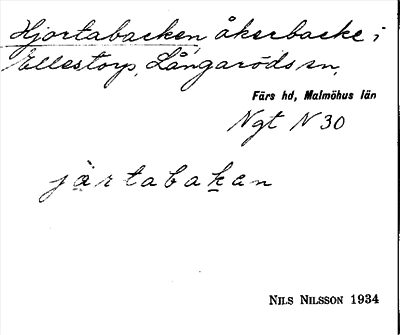 Hjortabacken åkerbacke i
Ellestorp, Långaröds sn,
Färs hd, Malmöhus län
Ngt N 30
jàrtabakan
NILS NILSSON 1934